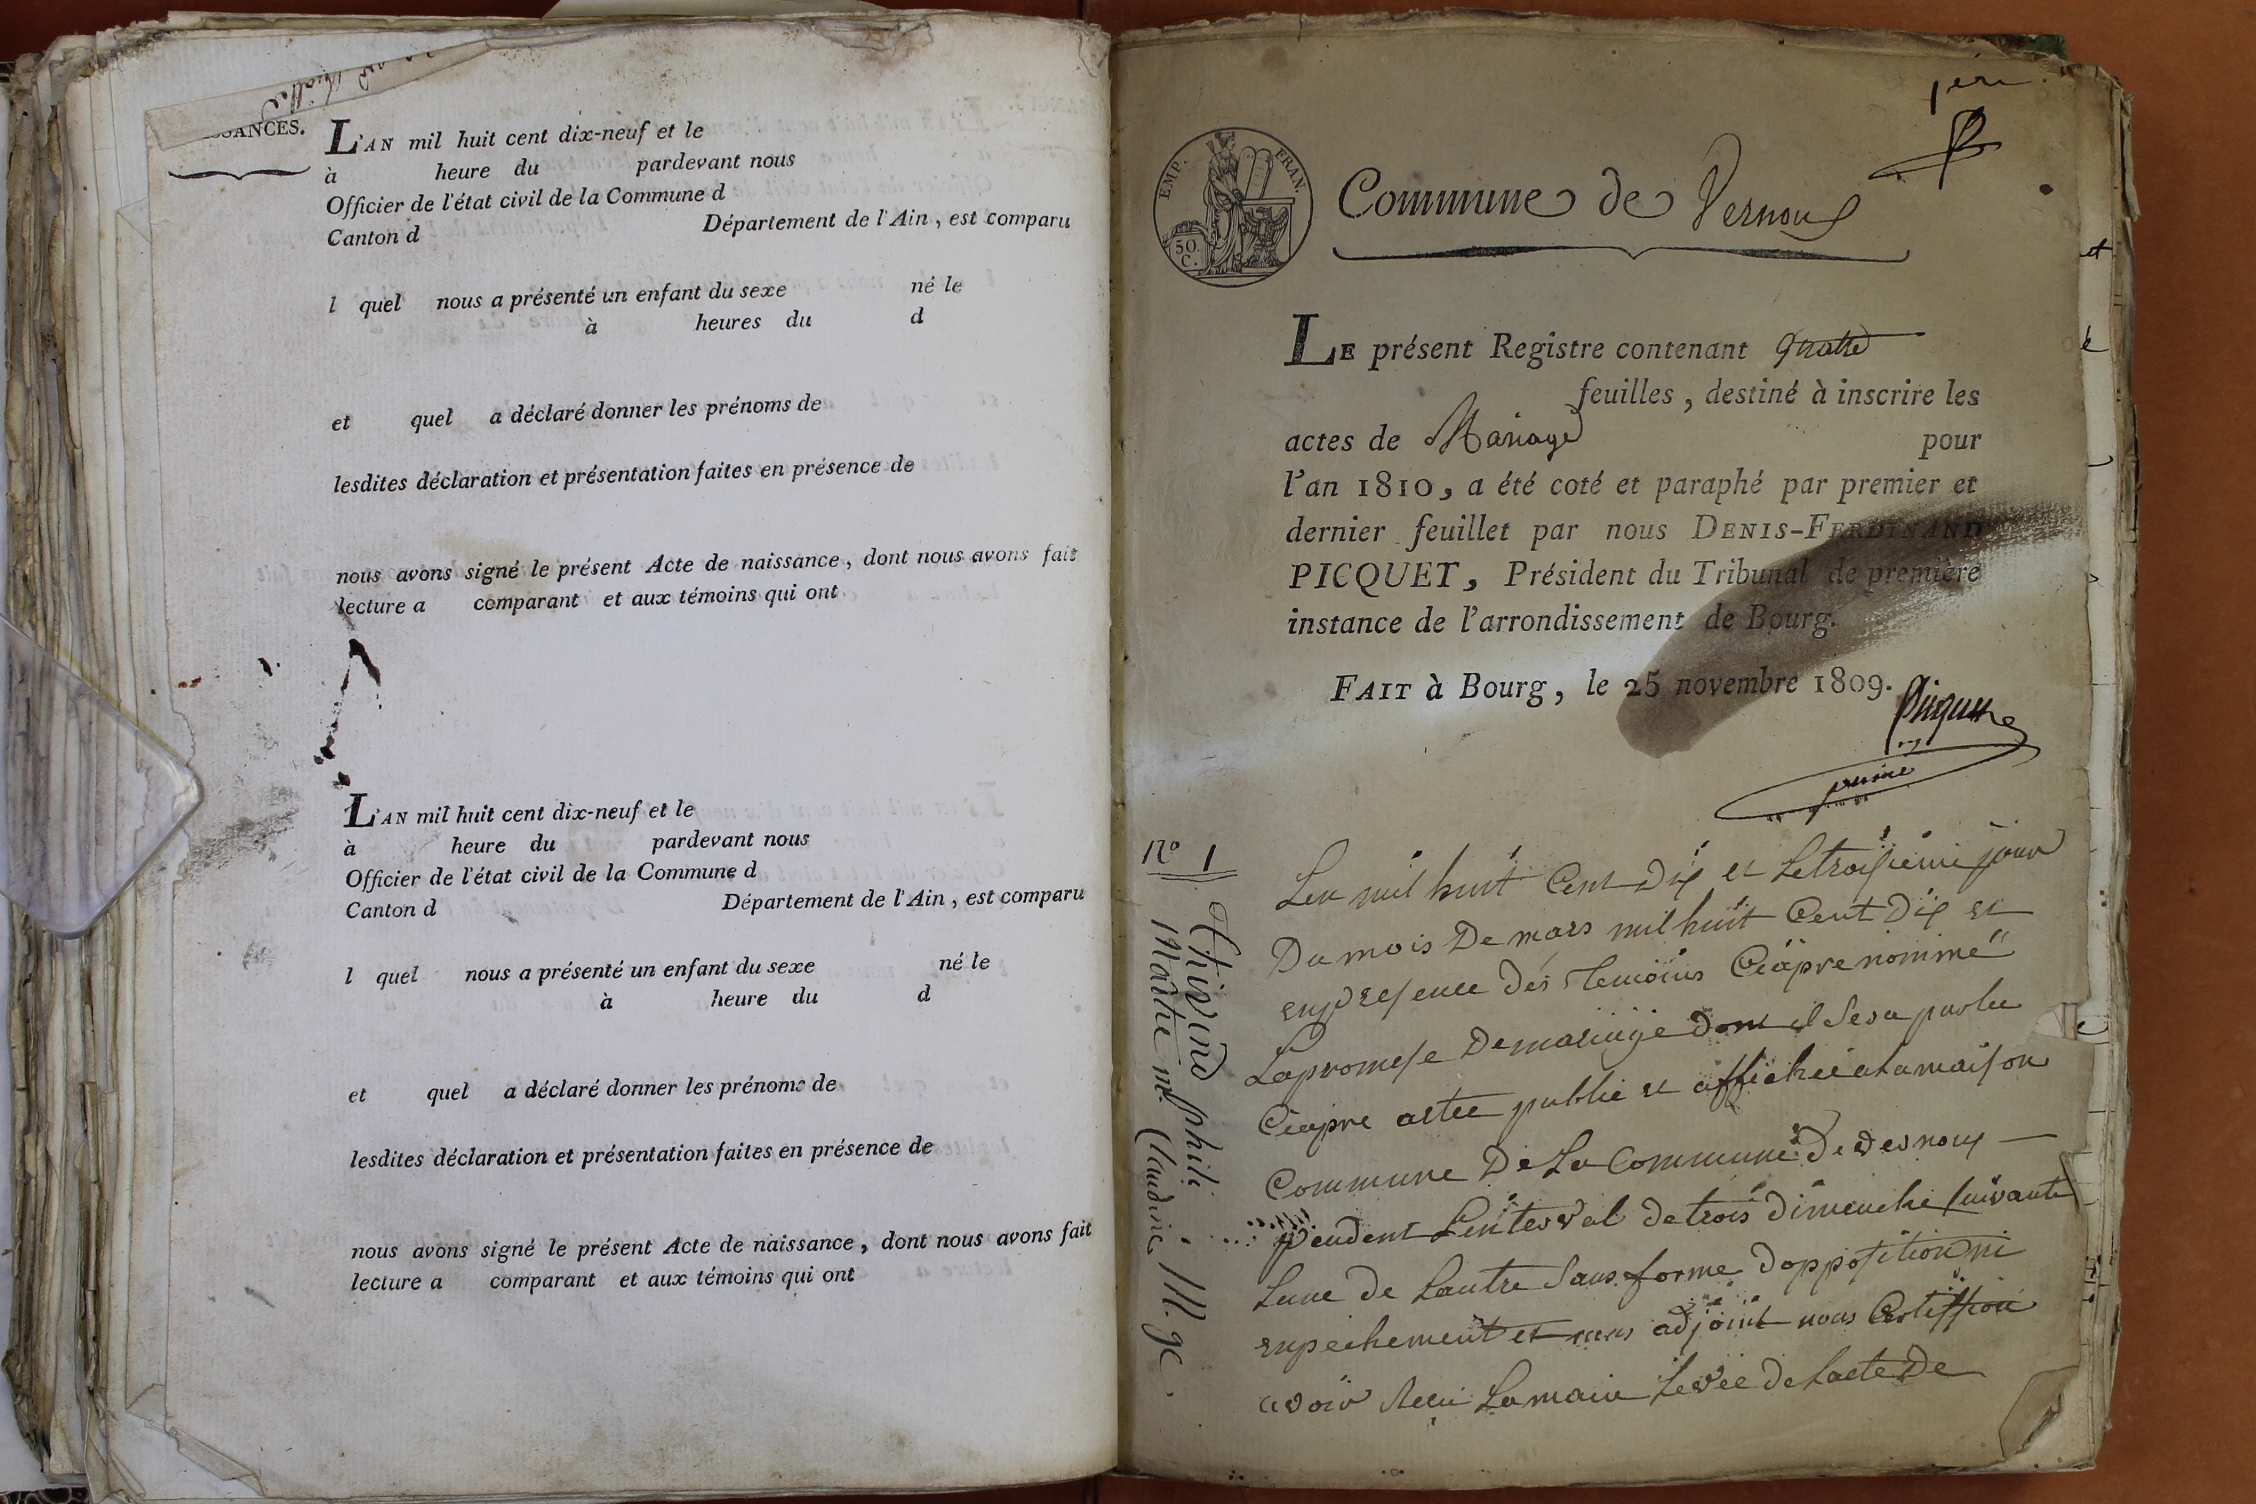 SSANCES.
L'AN mil huit cent dix-neuf et le
à heure du pardevant nous
Officier de l'état civil de la Commune d
Canton d Département de l'Ain, est comparu
l quel nous a présenté un enfant du sexe né le
à heures du d
et quel a déclaré donner les prénoms de
lesdites déclaration et présentation faites en présence de
nous avons signé le présent Acte de naissance, dont nous avons fait
lecture a comparant et aux témoins qui ont
L'AN mil huit cent dix-neuf et le
à heure du pardevant nous
Officier de l'état civil de la Commune d
Canton d Département de l'Ain, est comparu
l quel nous a présenté un enfant du sexe né le
à heure du d
et quel a déclaré donner les prénoms de
lesdites déclaration et présentation faites en présence de
nous avons signé le présent Acte de naissance, dont nous avons fait
lecture a comparant et aux témoins qui ont
EMP. FRAN.
50.
C.
Commune de Vernoux
LE présent Registre contenant quatre
feuilles, destiné à inscrire les
actes de Mariage pour
l'an 1810, a été coté et paraphé par premier et
dernier feuillet par nous DENIS-FERDINAND
PICQUET, Président du Tribunal de première
instance de l'arrondissement de Bourg.
FAIT à Bourg, le 25 novembre 1809.
Picquet
No 1
Thivend phili
Maître me Claudine M. ge.
Len mil huit Cent Dix et Letroisieme jour
Du mois De mars mil huit Cent Dix et
enpresence des Temoins Ciapre nommé
Lapromesse Demariage dont il Sera parlee
Ciapre aetee publié et affichée alamaison
Commune De La Commune De vernoux
pendent Linterval de trois dimenche suivante
Lune de Lautre Sans forme dopposition ni
enpechement et nous adjoint nous Certiffion
avoir Recu Lamain Levée de Lacte De